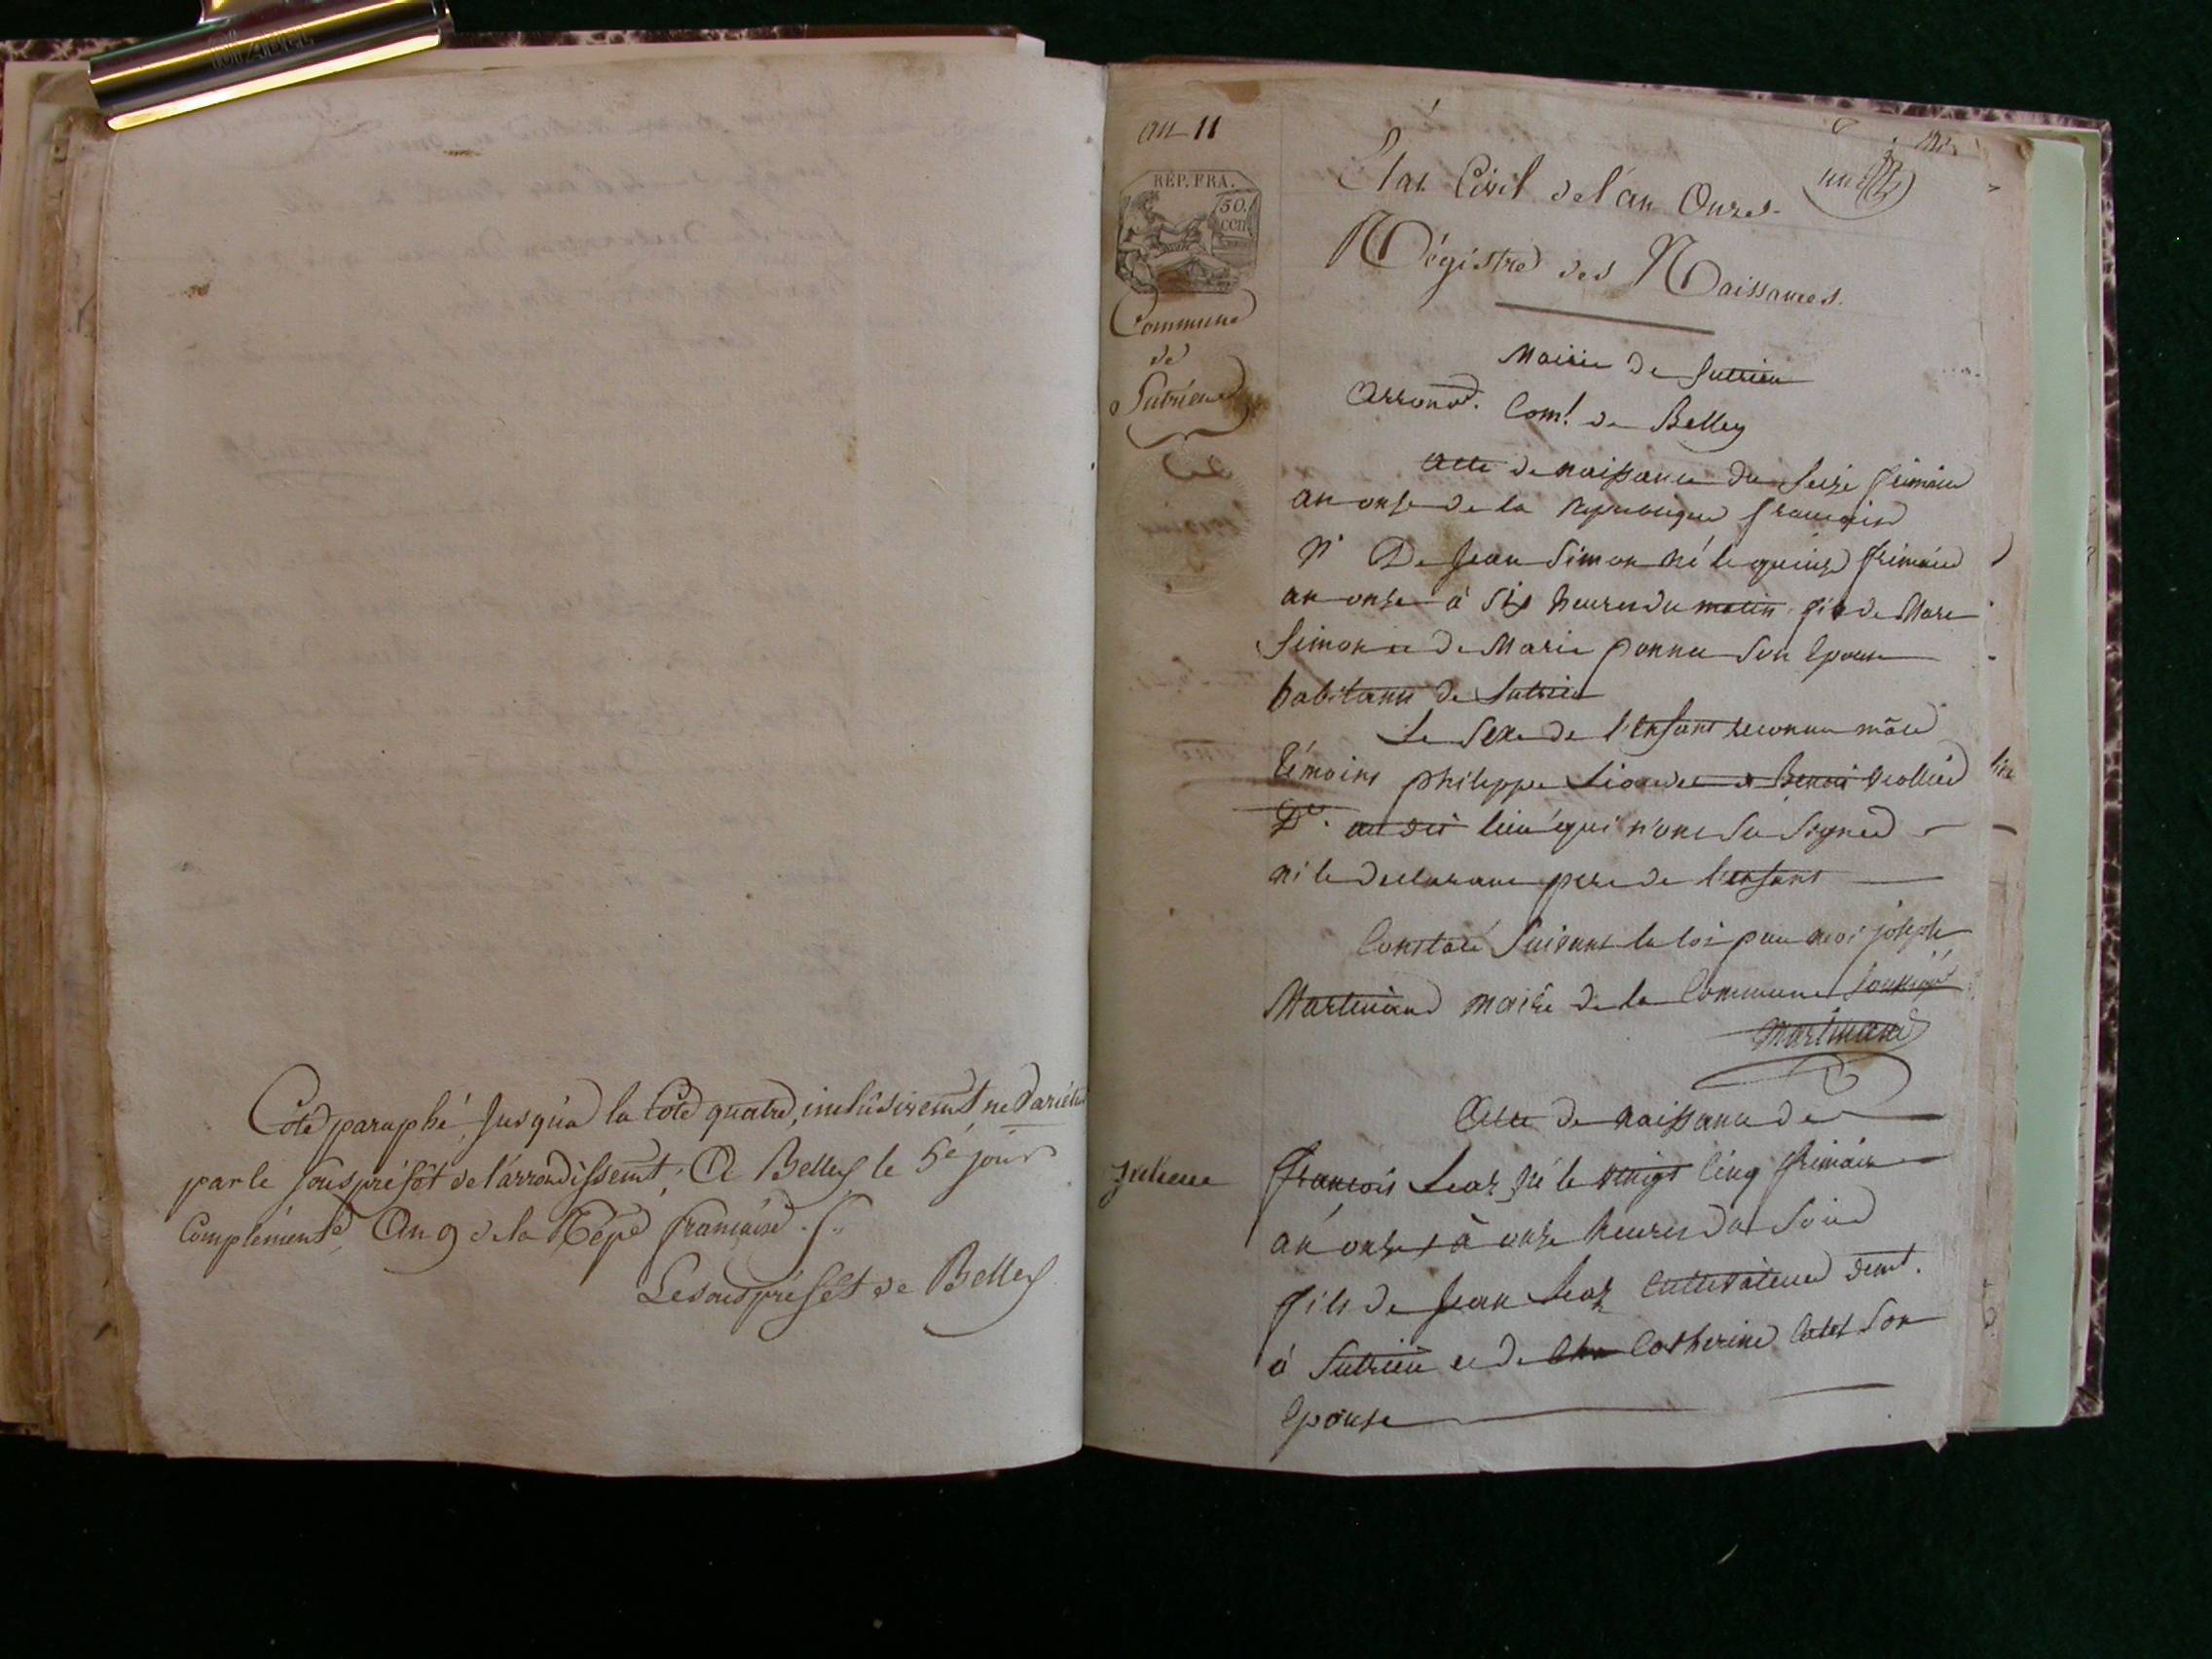 Coté paraphé, Jusqu'à la Cote quatre, inclusivemt ne Varietur
par le sous préfet de l'arrondissemt; A Belley le 5e jour
Complémentre, An 9 de la Répe française.
Le sous préfet de Belley
an 11
RÉP. FRA.
50.
cen
Commune
de
Sutrieu
État Civil de l'an Onze
une
Régistre des Naissances.
Mairie de Sutrieu
Arrond. Com.l de Belley
Acte de naissance du Seize frimaire
an onze de la Republique française
De Jean Simon né le quinze frimaire
an onze à six heures du matin fils de Marc
Simon et de Marie ponnu Son Epouse
habitans de Sutrieu
Le Sexe de l'Enfant reconnu mâle
Témoins philippe et Benoit
au dit lieu qui n'ont Su Signer
ni le declarant pere de l'enfant
Constaté Suivant la loi par moi joseph
Martinand maire de la Commune Soussigné
Martinand
Acte de naissance de
françois né le vingt Cinq frimaire
an onze à onze heures du Soir
fils de Jean Cultivateur demt.
à Sutrieu et de Catherine Son
Epouse